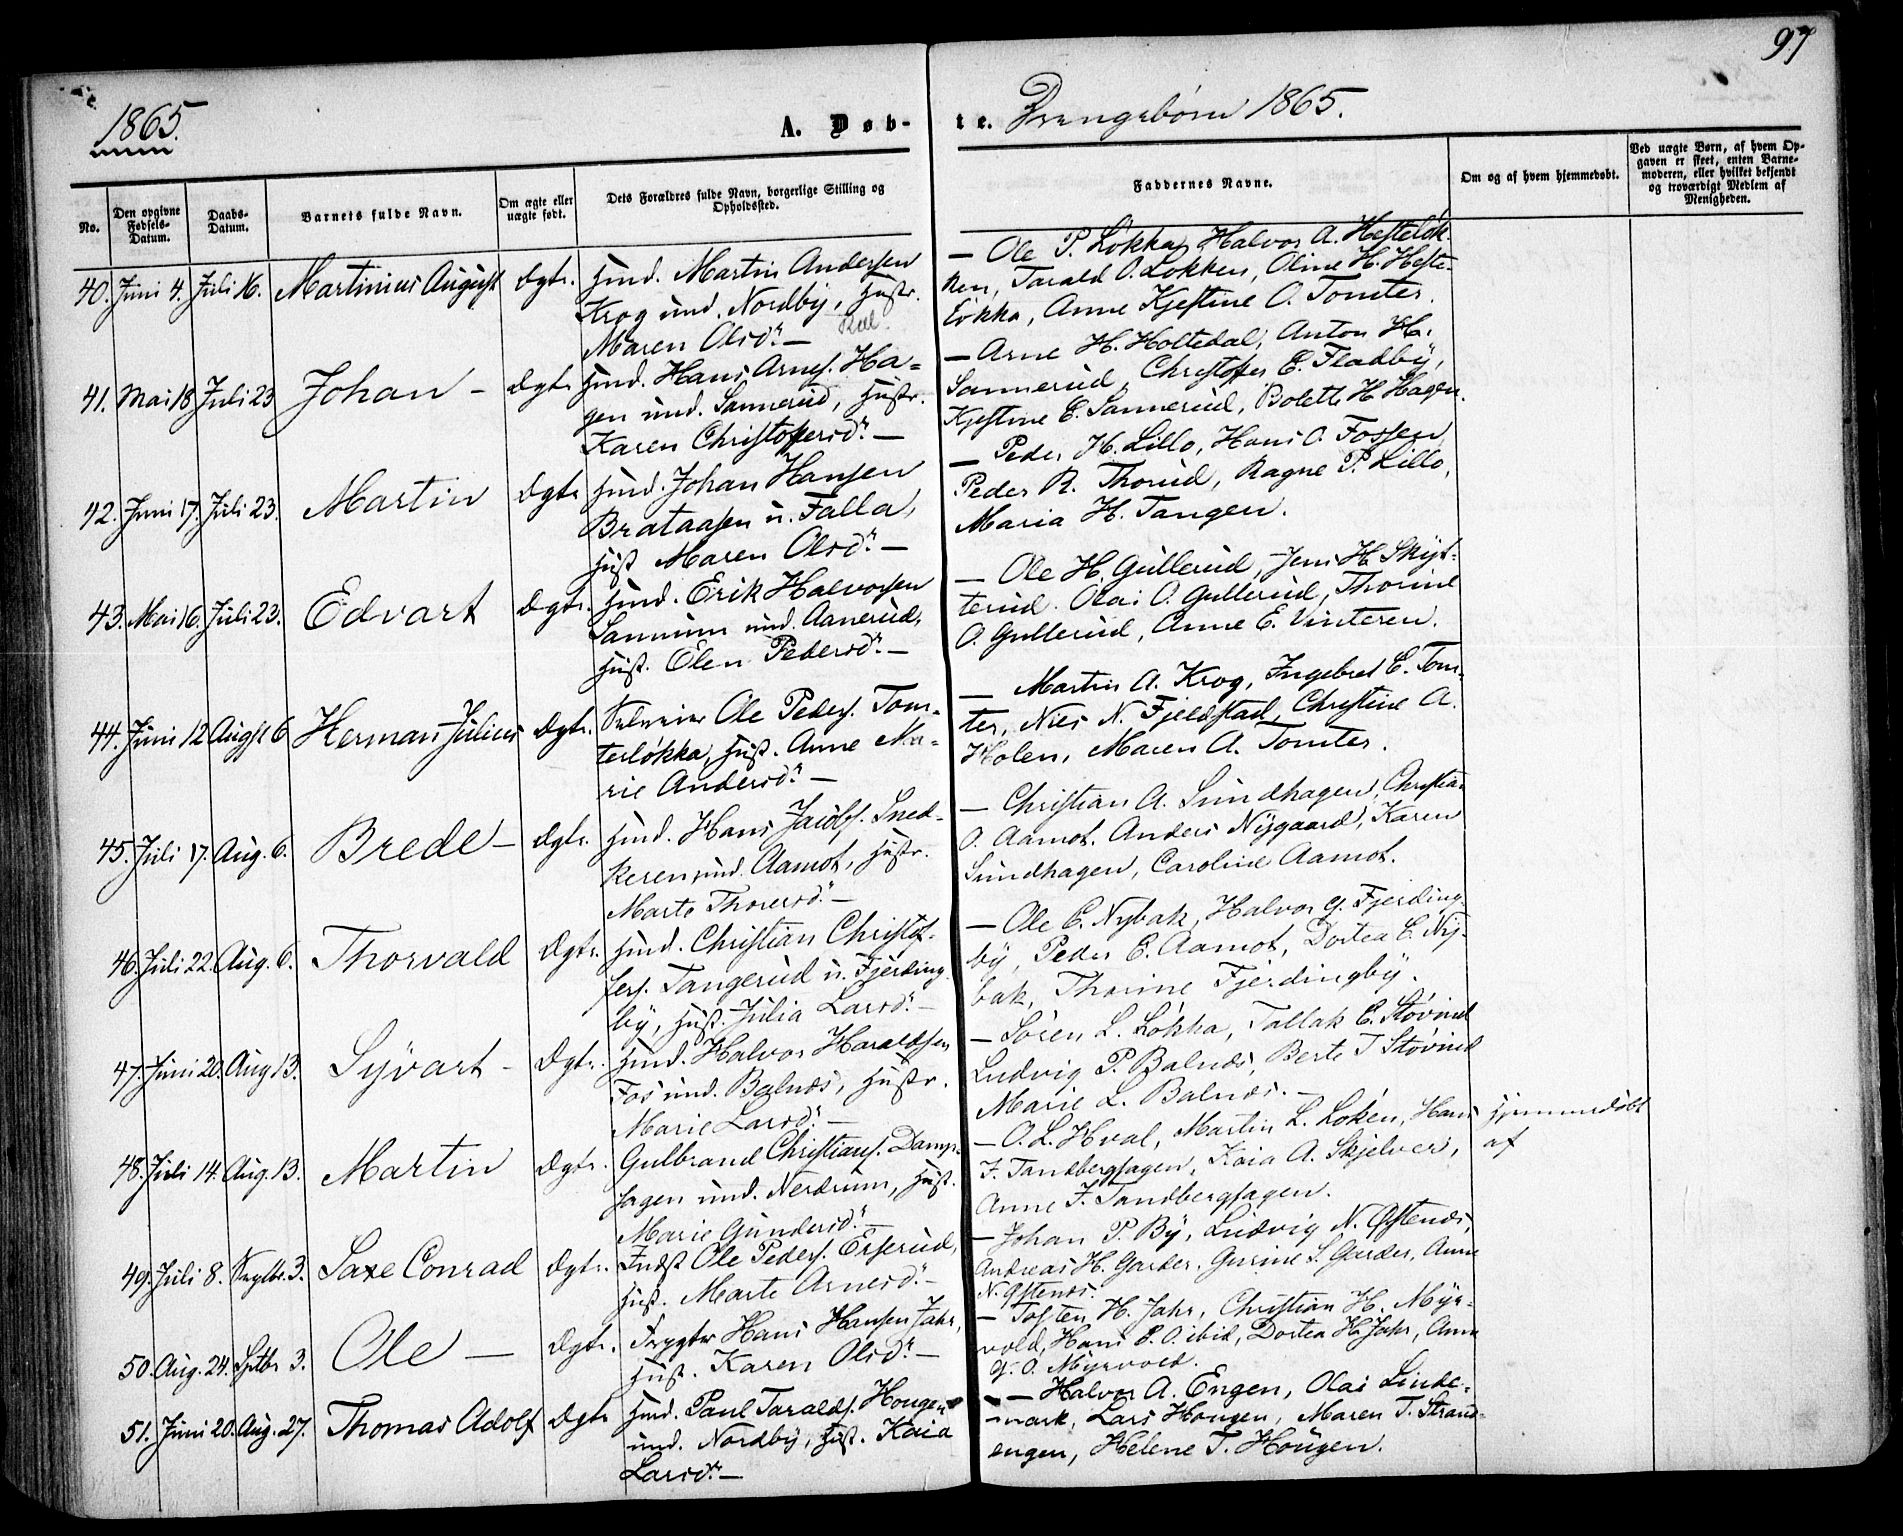 97
1865.
A. Døb-
te. Drengebørn 1865.
No.
Den opgivne Fødsels-Datum.
Daabs-Datum.
Barnets fulde Navn.
Om ægte eller uægte født.
Dets Forældres fulde Navn, borgerlige Stilling og Opholdssted.
Faddernes Navne.
Om og af hvem hjemmedøbt.
Ved uægte Børn, af hvem Opgaven er skeet, enten Barnemoderen, eller hvilket bekjendt og troværdigt Medlem af Menigheden.
40. Juni 4. Juli 16. Martinius August Ægte. Husmd. Martin Andersen
Krog und. Nordby, Hustr.
Maren Olsdr. —
— Ole P. Løkka, Halvor A. Hesteløk-
ken, Tarald O. Løkken, Oline H. Heste-
løkka, Anne Kjestine O. Tomter.
41. Mai 18 Juli 23 Johan — Ægte Husmd. Hans Arnes. Ha-
gen und. Sannerud, Hustr.
Karen Christoffersdr. —
— Arne H. Holtedal, Anton H.
Sannerud, Christoffer E. Fladby,
Kjestine E. Sannerud, Bolette H. Hagen.
42. Juni 17. Juli 23. Martin Ægte Husmd. Johan Hansen
Brataasen u. Falla,
Hust. Maren Olsdr. —
— Peder H. Lillo, Hans O. Fossen,
Peder R. Thorud, Ragne P. Lillo,
Maria H. Tangen.
43. Mai 16. Juli 23. Edvart Ægte. Husmd. Erik Halvorsen
Sannum und. Aanerud,
Hust. Elen Pedersdr. —
— Ole H. Gullerud, Jens H. Skyt-
terud. Olai O. Gullerud, Thorine
O. Gullerud, Anne E. Vinteren.
44. Juni 12 Augst 6 Herman Julius Ægte. Selveier Ole Peders. Tom-
terløkka, Hust. Anne Ma-
rie Andersdr. —
— Martin A. Krog, Ingebret E. Tom-
ter, Niels N. Fjeldstad, Christine A.
Holen, Maren A. Tomter.
45. Juli 17. Aug. 6. Brede — Ægte. Husmd. Hans Jacobs. Sned-
keren und. Aamot, Hustr.
Marte Thoresdr. —
— Christian A. Sundhagen, Christian
O. Aamot. Anders Nygaard, Karen
Sundhagen, Caroline Aamot.
46. Juli 22. Aug. 6. Thorvald Ægte. Husmd. Christian Christof-
fers. Tangerud u. Fjerding-
by, Hust. Julia Larsdr. —
— Ole E. Nybak, Halvor G. Fjerding-
by, Peder E. Aamot, Dortea E. Ny-
bak, Thorine Fjerdingby.
47. Juni 20. Aug 13. Syvart — Ægte. Husmd. Halvor Haraldsen
Fos und. Balnæs, Hustr.
Marie Larsdr. —
— Søren L. Løkka, Tallak E. Støvind
Ludvig P. Balnæs, Berte T. Støvind
Marie L. Balnæs. —
48. Juli 14. Aug. 13. Martin Ægte. Gulbrand Christians. Damp-
sagen und. Nerdrum, Hust.
Marie Gundersdr. —
— O. L. Hval, Martin L. Løken, Hans
F. Tandbergsagen, Kaia A. Skjelver,
Anne F. Tandbergsagen.
Hjemmedøbt
af
49. Juli 8. Septbr. 3. Saxe Conrad Ægte. Indst Ole Peders. Erserud,
Hust. Marte Arnesdr. —
— Johan P. By, Ludvig N. Østenæs,
Andreas H. Garder. Gurine L. Garder, Anne
N. Østenæs.
50. Aug. 24. Sptbr 3. Ole — Ægte. Forpagter Hans Hansen Jahr,
Hust. Karen Olsdr. —
— Tosten H. Jahr, Christian H. Myr-
vold, Hans E. O. ibid, Dortea H. Jahr, Anne
G. O. Myrvold.
51. Juni 20. Aug. 27. Thomas Adolf Ægte Husmd. Paul Taralds. Hougen
und. Nordby, Hust. Kaia
Larsdr. —
— Halvor A. Engen, Olai Linde-
mark, Lars Hougen, Maren T. Strand-
engen, Helene T. Hougen.